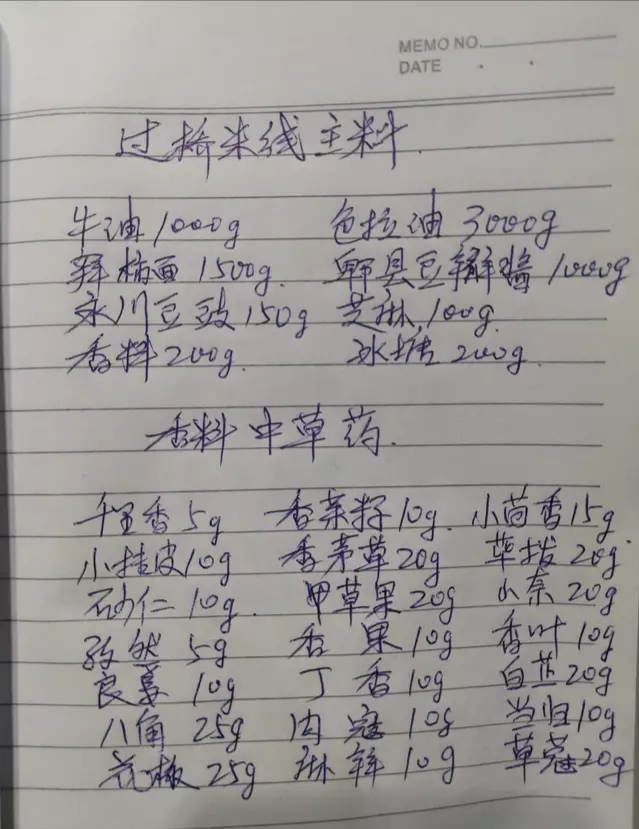 MEMO NO.
DATE
过桥米线主料.
牛油1000g 色拉油3000g
1500g. 郫县豆瓣酱1000g
永川豆豉150g 芝麻100g.
香料200g. 冰糖200g.
香料中草药.
千里香5g 香菜籽10g. 小茴香15g
小桂皮10g 香茅草20g 荜拨20g.
砂仁10g. 甲草果20g 20g
孜然5g 香果10g 香叶10g
良姜10g 丁香10g 白芷20g
八角25g 肉寇10g 当归10g
花椒25g 10g 草蔻20g